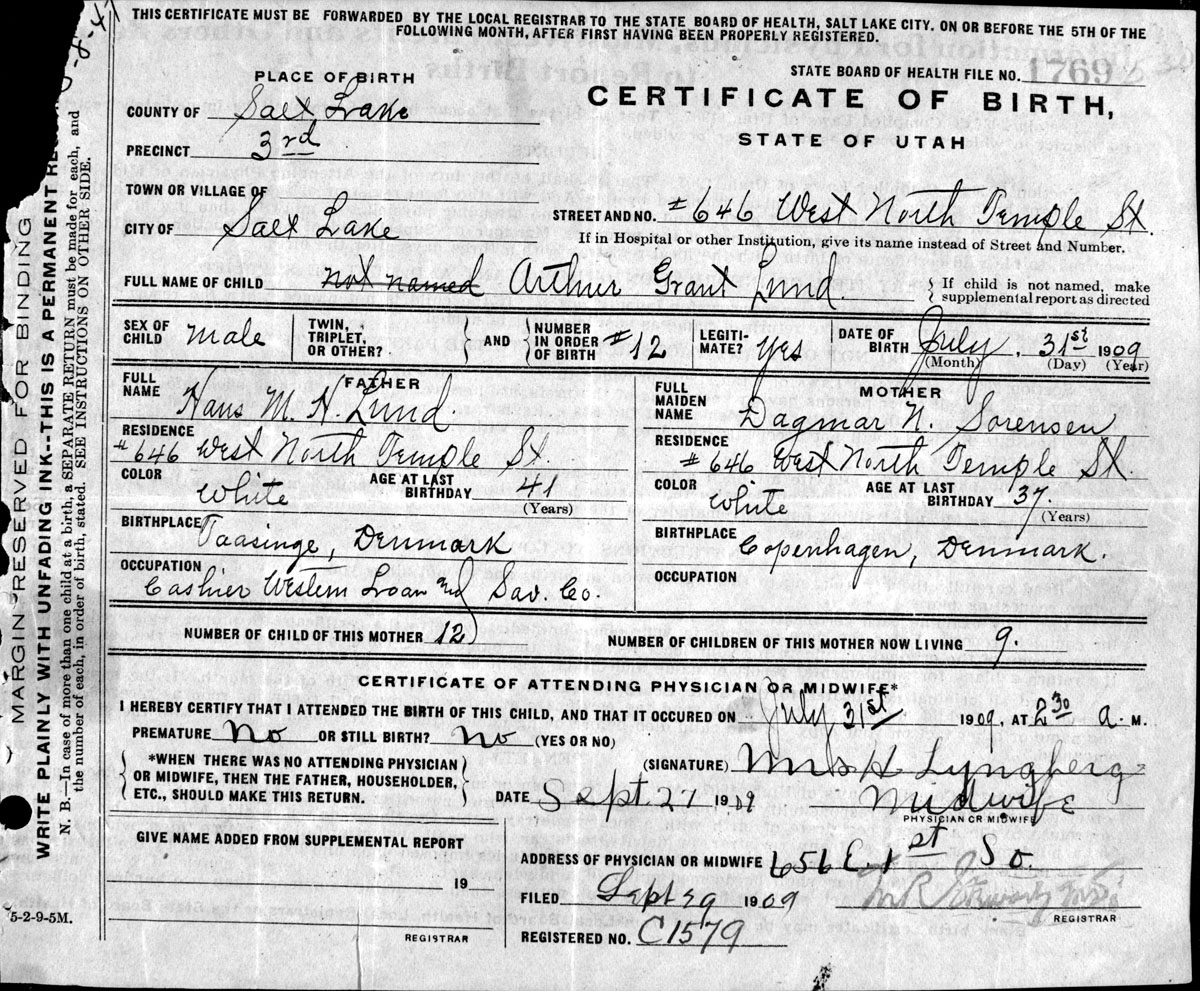 THIS CERTIFICATE MUST BE FORWARDED BY THE LOCAL REGISTRAR TO THE STATE BOARD OF HEALTH, SALT LAKE CITY, ON OR BEFORE THE 5TH OF THE
FOLLOWING MONTH, AFTER FIRST HAVING BEEN PROPERLY REGISTERED.
PLACE OF BIRTH
STATE BOARD OF HEALTH FILE NO. 1769
COUNTY OF Salt Lake
CERTIFICATE OF BIRTH,
PRECINCT 3rd
STATE OF UTAH
TOWN OR VILLAGE OF
CITY OF Salt Lake
STREET AND NO. #646 West North Temple St.
If in Hospital or other Institution, give its name instead of Street and Number.
FULL NAME OF CHILD not named Arthur Grant Lund.
If child is not named, make
supplemental report as directed
SEX OF
CHILD male
TWIN,
TRIPLET,
OR OTHER?
AND
NUMBER
IN ORDER
OF BIRTH #12
LEGITI-
MATE? yes
DATE OF
BIRTH July, 31st 1909
(Month) (Day) (Year)
FATHER
FULL
NAME Hans M. H. Lund
RESIDENCE
#646 West North Temple St.
COLOR White
AGE AT LAST
BIRTHDAY 41
(Years)
BIRTHPLACE
Taasinge, Denmark
OCCUPATION
Cashier Western Loan and Sav. Co.
MOTHER
FULL
MAIDEN
NAME Dagmar N. Sorensen
RESIDENCE
#646 West North Temple St.
COLOR White
AGE AT LAST
BIRTHDAY 37.
(Years)
BIRTHPLACE
Copenhagen, Denmark.
OCCUPATION
NUMBER OF CHILD OF THIS MOTHER 12
NUMBER OF CHILDREN OF THIS MOTHER NOW LIVING 9.
CERTIFICATE OF ATTENDING PHYSICIAN OR MIDWIFE*
I HEREBY CERTIFY THAT I ATTENDED THE BIRTH OF THIS CHILD, AND THAT IT OCCURED ON July 31st 1909, AT 2 30 a. M.
PREMATURE No OR STILL BIRTH? No (YES OR NO)
*WHEN THERE WAS NO ATTENDING PHYSICIAN
OR MIDWIFE, THEN THE FATHER, HOUSEHOLDER,
ETC., SHOULD MAKE THIS RETURN.
(SIGNATURE) Mrs H Lyngberg
DATE Sept. 27 1909
Midwife
PHYSICIAN OR MIDWIFE
GIVE NAME ADDED FROM SUPPLEMENTAL REPORT
19
REGISTRAR
5-2-9-5M.
ADDRESS OF PHYSICIAN OR MIDWIFE 656 E. 1st So.
FILED Sept 29 1909
REGISTRAR
REGISTERED NO. C1579
MARGIN RESERVED FOR BINDING
WRITE PLAINLY WITH UNFADING INK--THIS IS A PERMANENT
N. B.—In case of more than one child at a birth, a SEPARATE RETURN must be made for each, and
the number of each, in order of birth, stated. SEE INSTRUCTIONS ON OTHER SIDE.